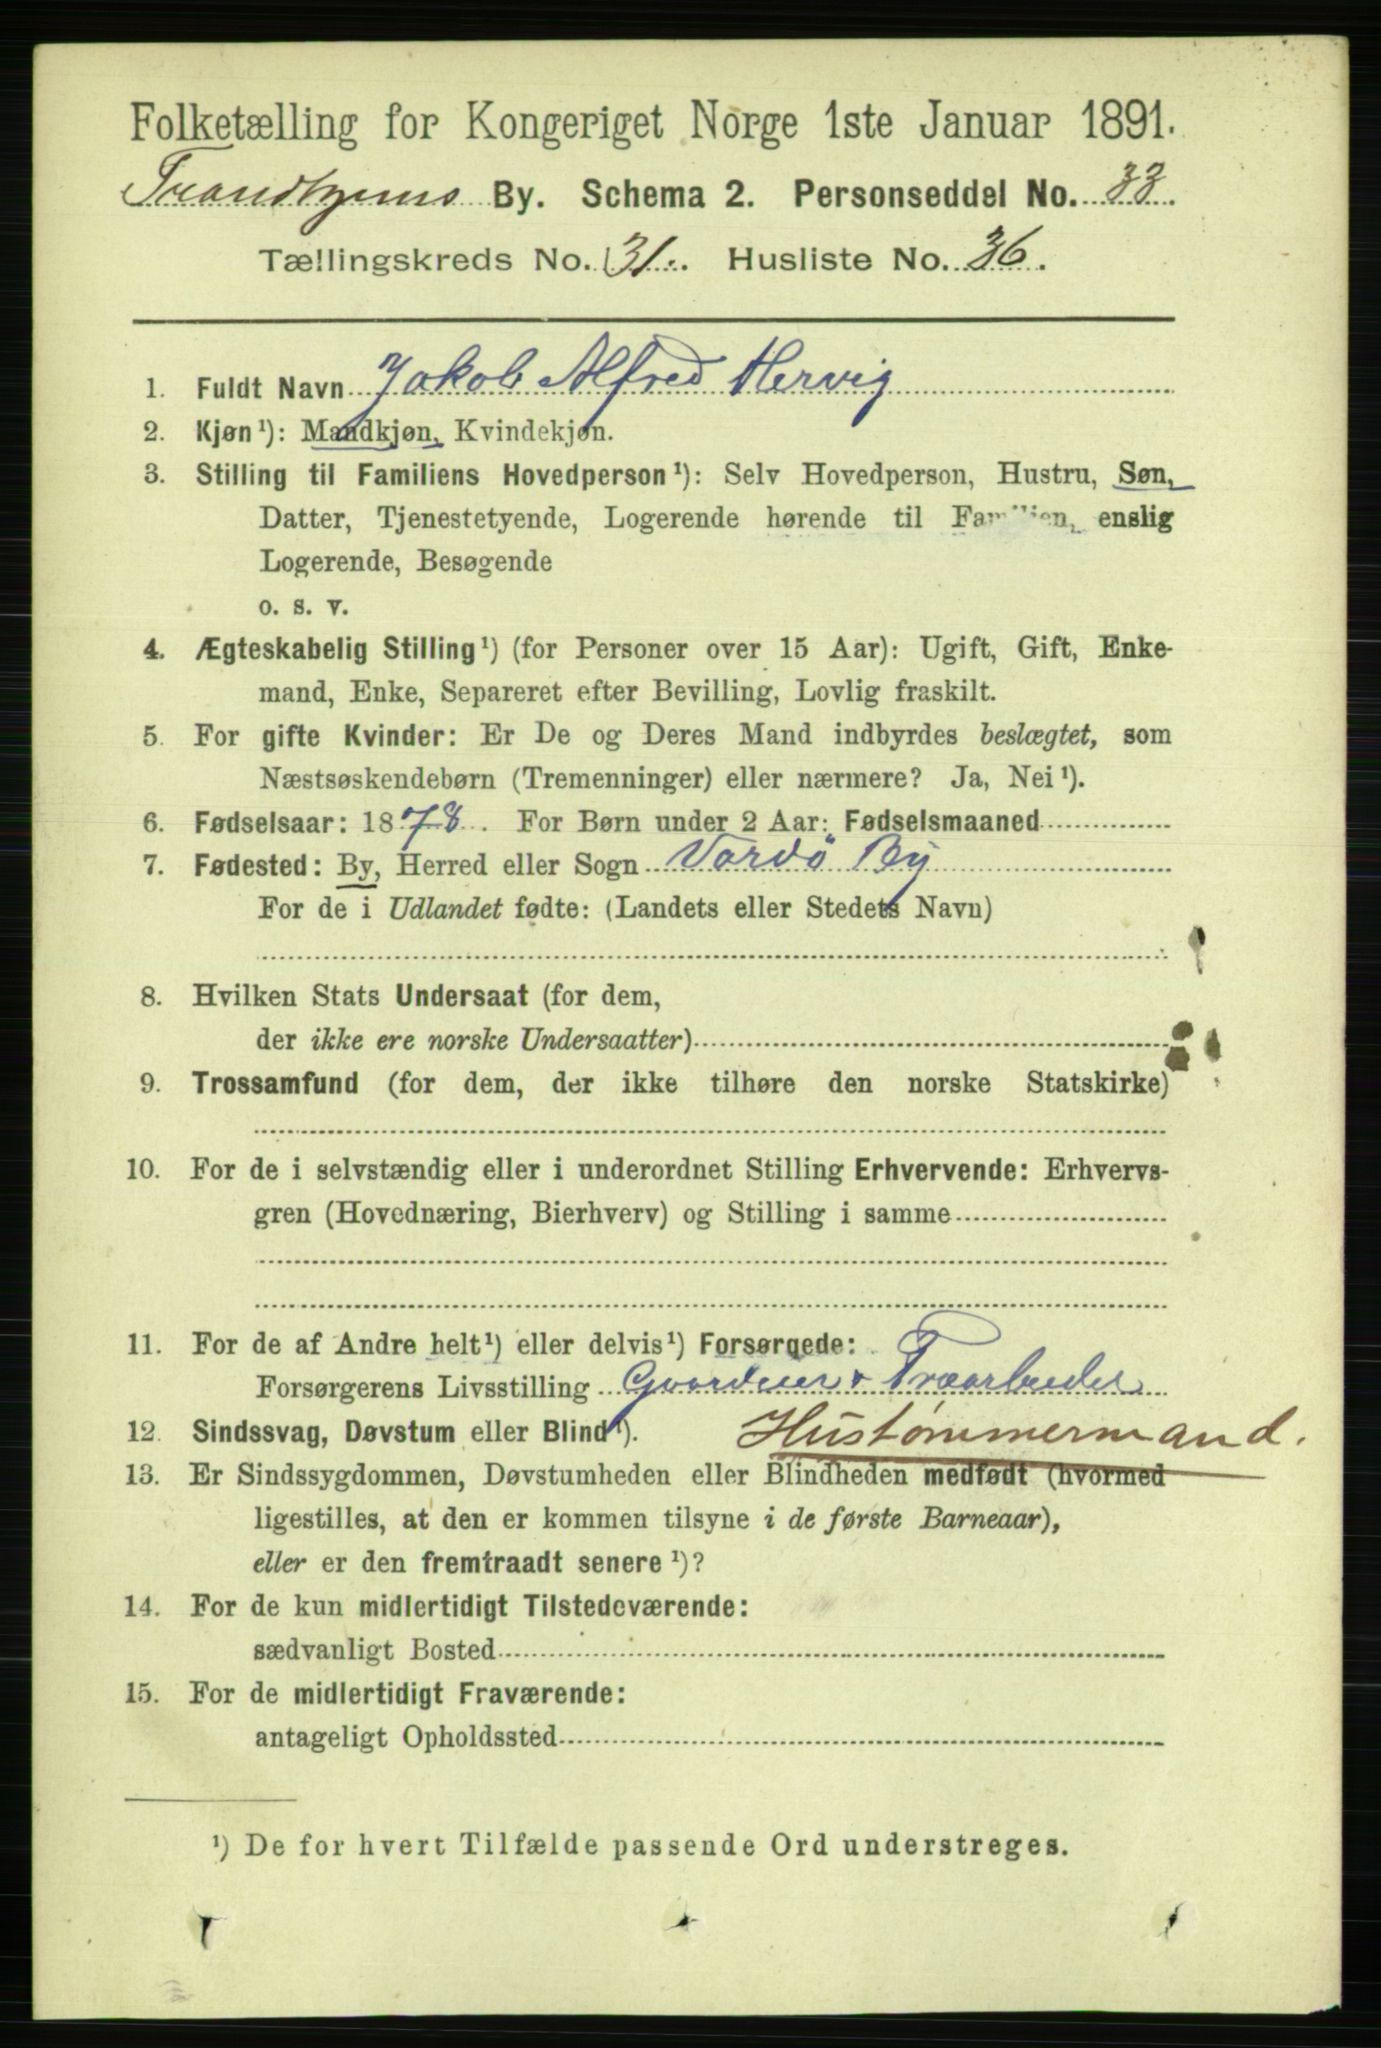 Folketælling for Kongeriget Norge 1ste Januar 1891.
Trondhjems By. Schema 2. Personseddel No. 33.
Tællingskreds No. 31. Husliste No. 36.
1. Fuldt Navn Jakob Alfred Hervig
2. Kjøn¹): Mandkjøn, Kvindekjøn.
3. Stilling til Familiens Hovedperson¹): Selv Hovedperson, Hustru, Søn,
Datter, Tjenestetyende, Logerende hørende til Familien, enslig
Logerende, Besøgende
o. s. v.
4. Ægteskabelig Stilling¹) (for Personer over 15 Aar): Ugift, Gift, Enke-
mand, Enke, Separeret efter Bevilling, Lovlig fraskilt.
5. For gifte Kvinder: Er De og Deres Mand indbyrdes beslægtet, som
Næstsøskendebørn (Tremenninger) eller nærmere? Ja, Nei¹).
6. Fødselsaar: 1878. For Børn under 2 Aar: Fødselsmaaned
7. Fødested: By, Herred eller Sogn Vardö By
For de i Udlandet fødte: (Landets eller Stedets Navn)
8. Hvilken Stats Undersaat (for dem,
der ikke ere norske Undersaatter)
9. Trossamfund (for dem, der ikke tilhøre den norske Statskirke)
10. For de i selvstændig eller i underordnet Stilling Erhvervende: Erhvervs-
gren (Hovednæring, Bierhverv) og Stilling i samme
11. For de af Andre helt¹) eller delvis¹) Forsørgede:
Forsørgerens Livsstilling Gaardeier & Træarbeider
12. Sindssvag, Døvstum eller Blind¹). Hustømmermand.
13. Er Sindssygdommen, Døvstumheden eller Blindheden medfødt (hvormed
ligestilles, at den er kommen tilsyne i de første Barneaar),
eller er den fremtraadt senere¹)?
14. For de kun midlertidigt Tilstedeværende:
sædvanligt Bosted
15. For de midlertidigt Fraværende:
antageligt Opholdssted
¹) De for hvert Tilfælde passende Ord understreges.